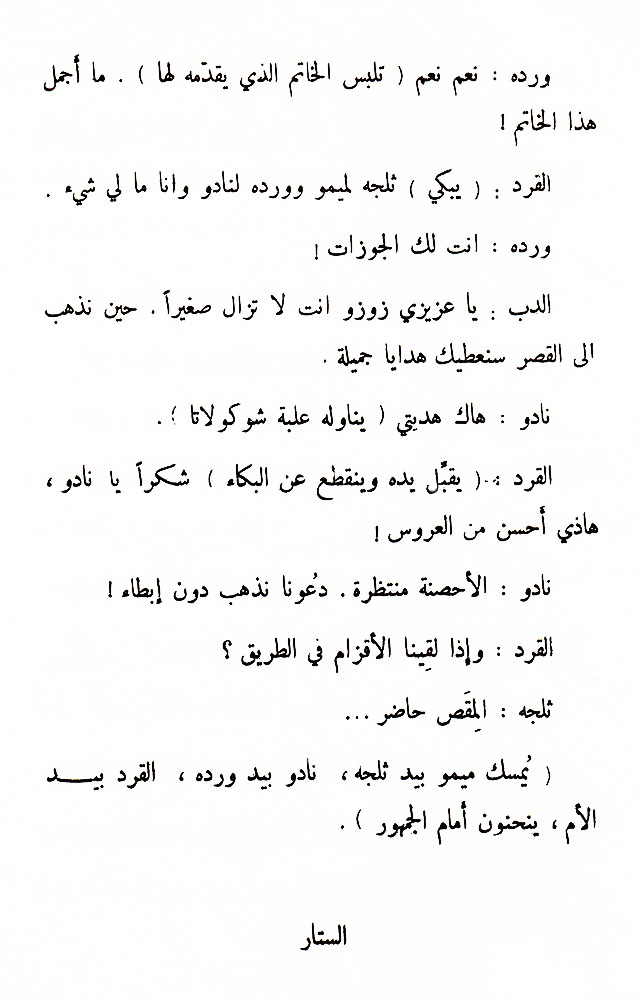 ورده : نعم نعم ( تلبس الخاتم الذي يقدّمه لها ) . ما أَجمل
هذا الخاتم !
القرد : ( يبكي ) ثلجه لميمو وورده لنادو وانا ما لي شيء .
ورده : انت لك الجوزات !
الدب : يا عزيزي زوزو انت لا تزال صغيراً . حين نذهب
الى القصر سنعطيك هدايا جميلة .
نادو : هاك هديتي ( يناوله علبة شوكولاتا ) .
القرد : ( يقبَّل يده وينقطع عن البكاء ) شكراً يا نادو ،
هاذي أَحسن من العروس !
نادو : الأحصنة منتظرة . دعُونا نذهب دون إبطاء !
القرد : وإذا لقِينا الأقزام في الطريق ؟
ثلجه : المِقَص حاضر ...
( يُمسك ميمو بيد ثلجه ، نادو بيد ورده ، القرد بيـــد
الأم ، ينحنون أمام الجمهور ) .
الستار